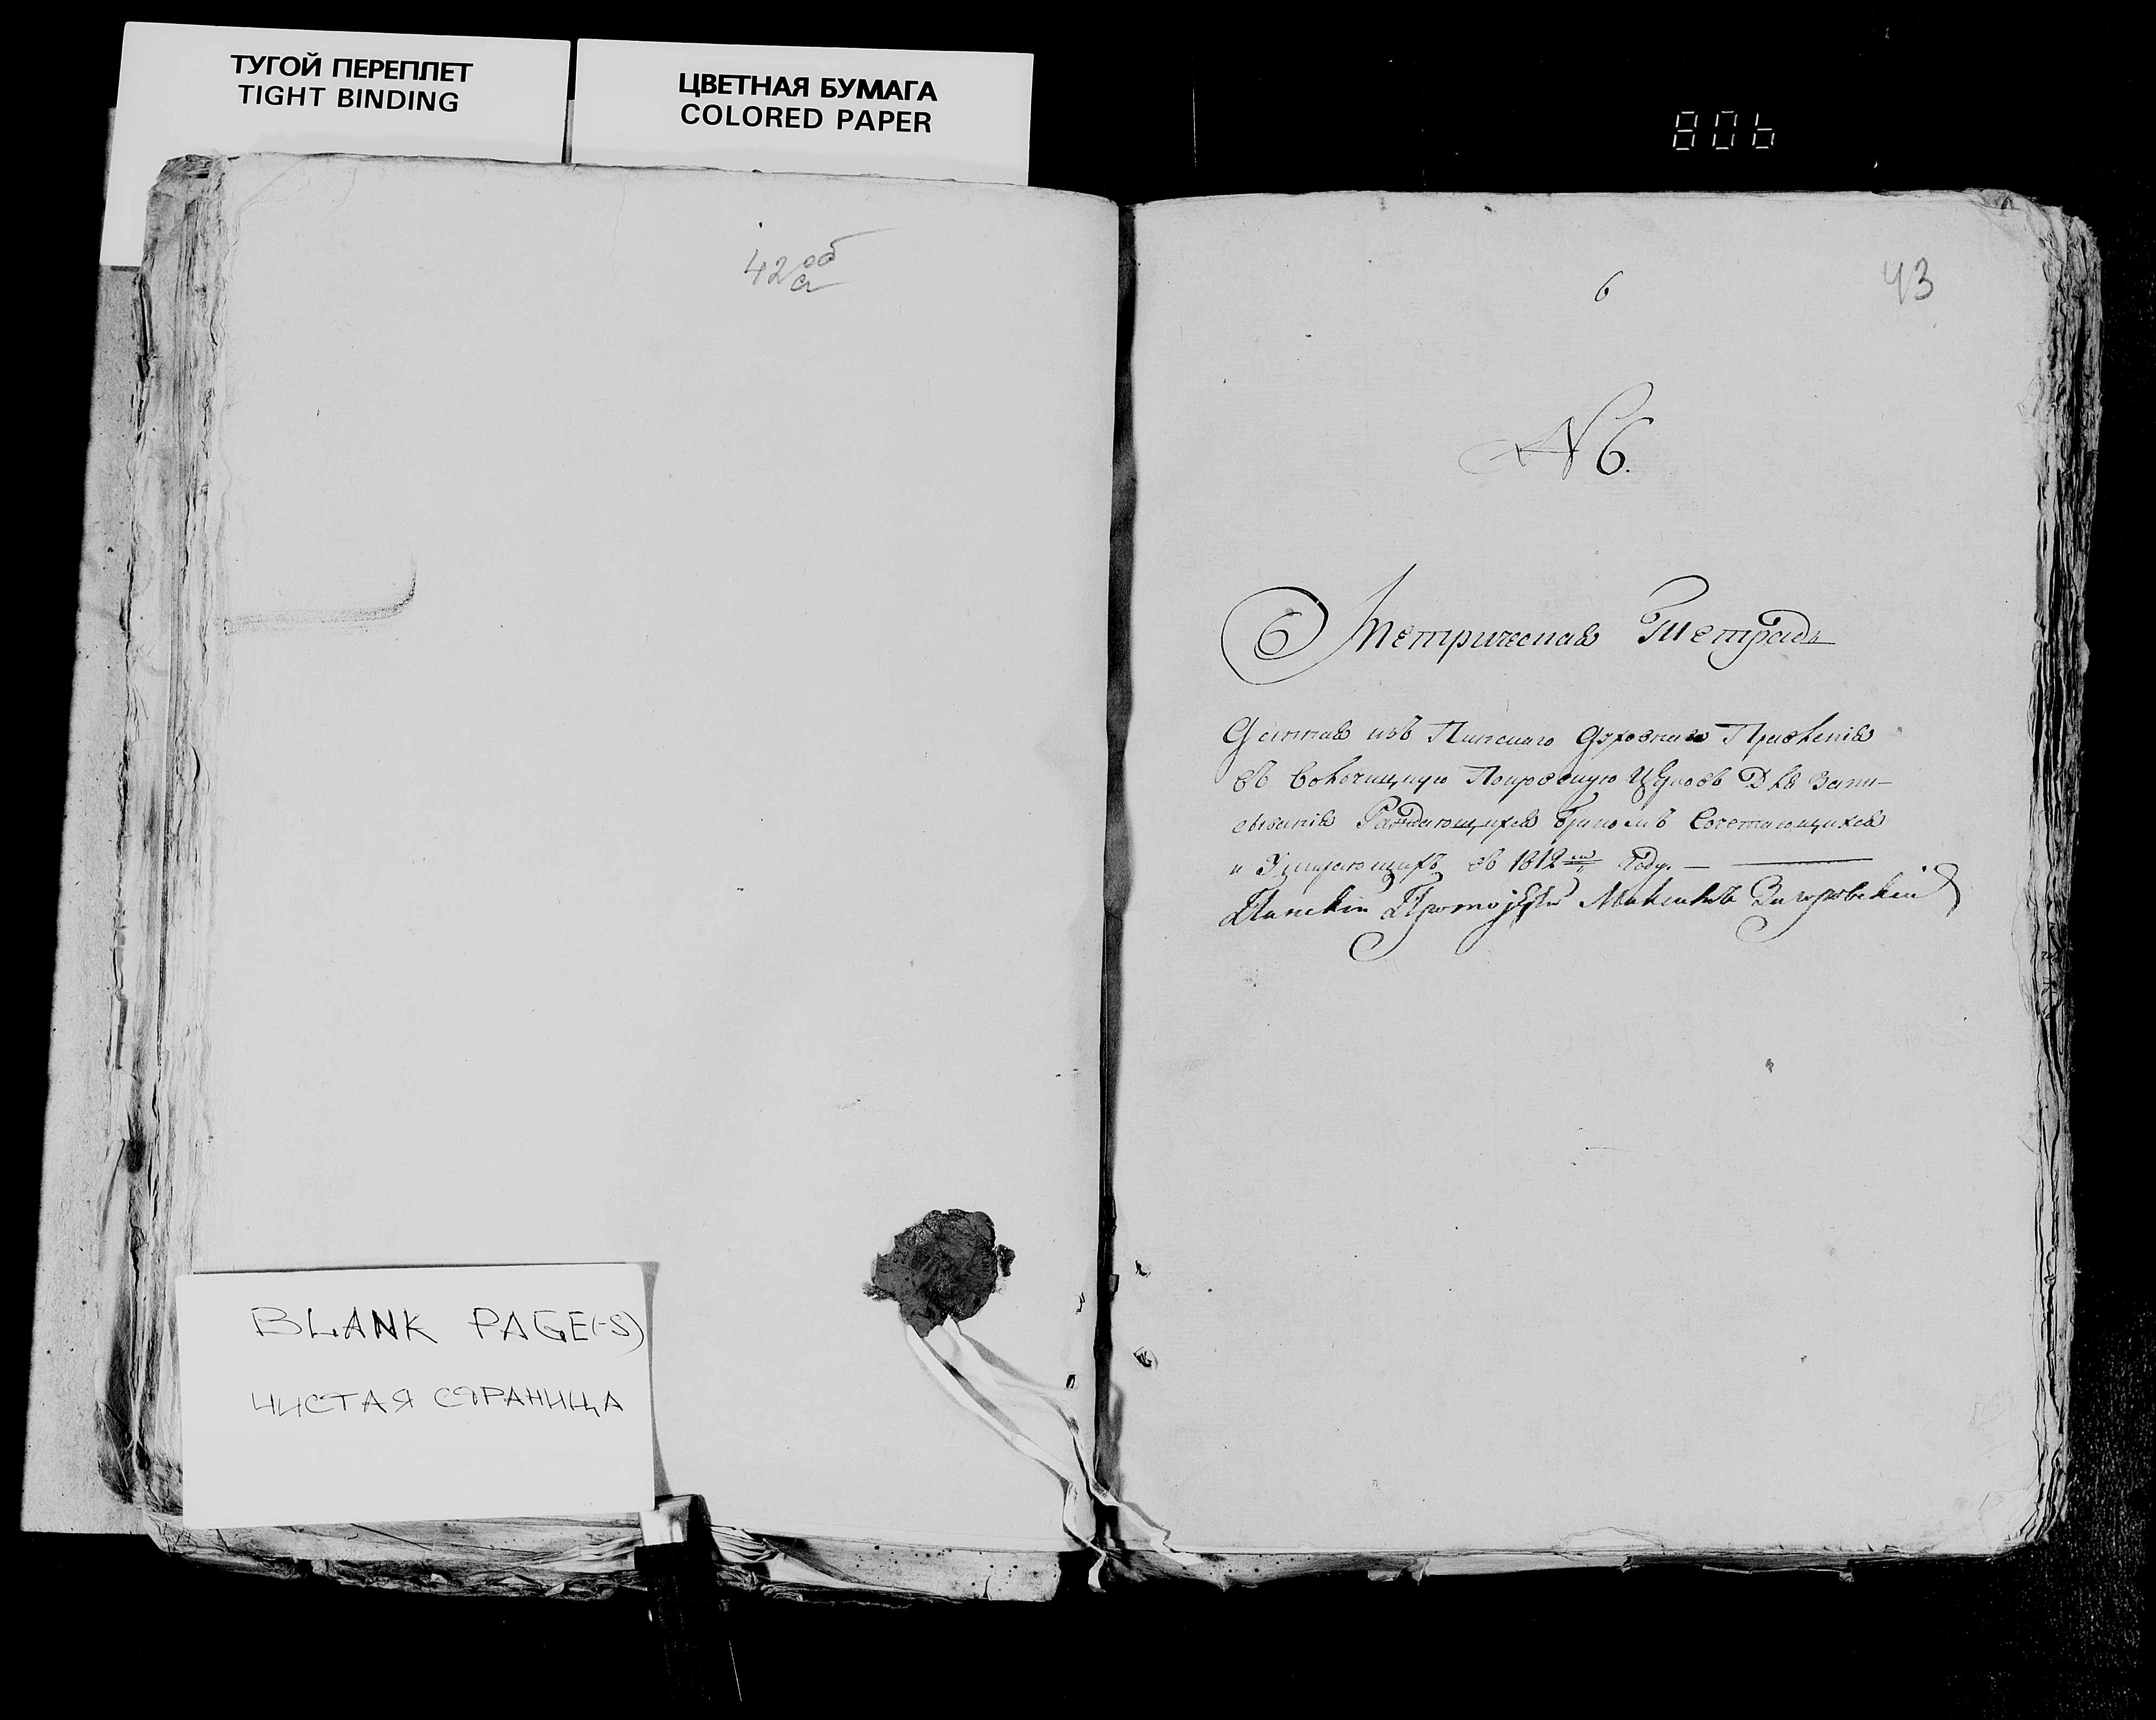 ТУГОЙ ПЕРЕПЛЕТ
TIGHT BINDING
ЦВЕТНАЯ БУМАГА
COLORED PAPER
806
42 об
а
6
43
N 6.
Метрическая Тетрадь
Данная изъ Пинскаго Духовнаго Правленія
въ Покровскую Церковь Для Запи-
сыванія Раждающихся бракомъ Сочетающихся
и Умирающихъ въ 1812 м Году.
Пинскій Протоіерей
BLANK PAGE(-S)
ЧИСТАЯ СТРАНИЦА